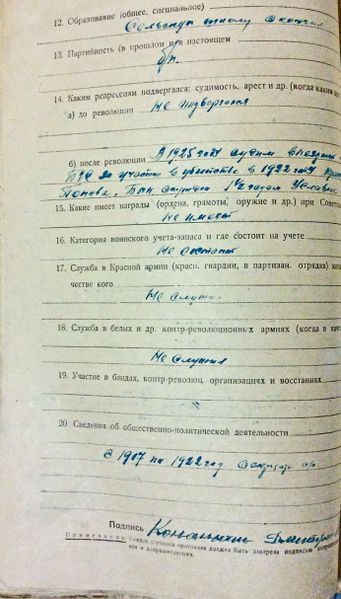 12. Образование (общее, специальное)
Сельскую школу окончил
13. Партийность (в прошлом и в настоящем
б/п.
14. Каким репрессиям подвергался: судимость, арест и др. (когда каким
а) до революции не подвергался
б) после революции В 1925 году судим
за участие в убийстве в 1922 году
Попова, был осужден 1 годом условно
15. Какие имеет награды (ордена, грамоты, оружие и др.) при Совет
Не имеет
16. Категория воинского учета-запаса и где состоит на учете
Не состоит
17. Служба в Красной армии (красн. гвардии, в партизан. отрядах) ког
честве кого
Не служил
18. Служба в белых и др. контр-революционных армиях (когда в каче
Не служил
19. Участие в бандах, контр-революц. организациях и восстаниях
20 Сведения об общественно-политической деятельности
С 1917 по 1922 год
Подпись
Примечание: Каждая страница протокола должна быть заверена подписью